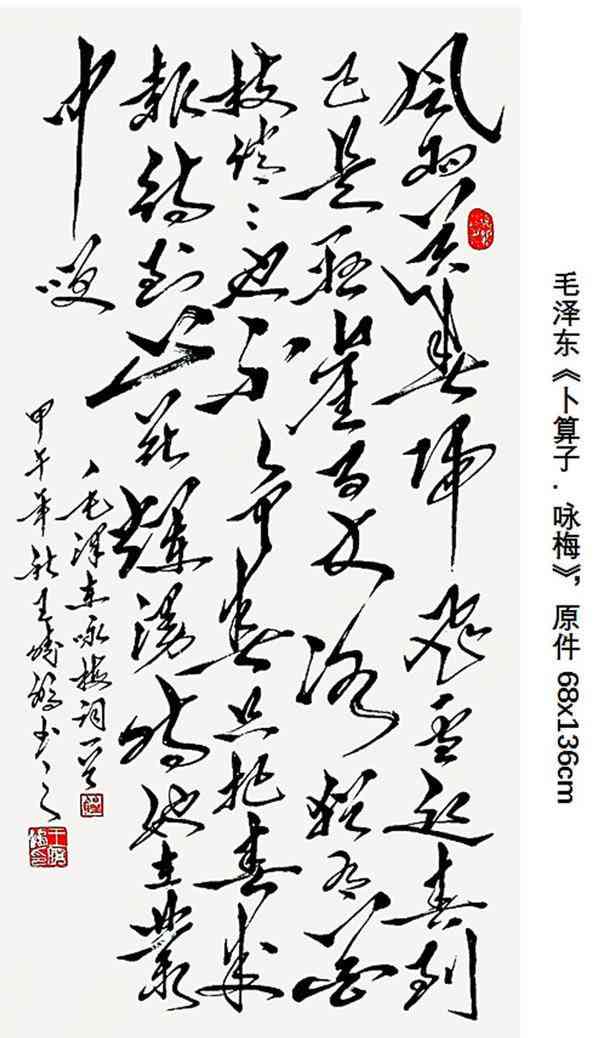 风雨送春归飛雪迎春到
已是悬崖百丈冰犹有花
枝俏俏也不争春只把春来
報待到山花爛漫時她在叢
中咲
毛泽东咏梅词一首
甲午年秋王
毛泽东《卜算子.咏梅》，原件 68x136cm